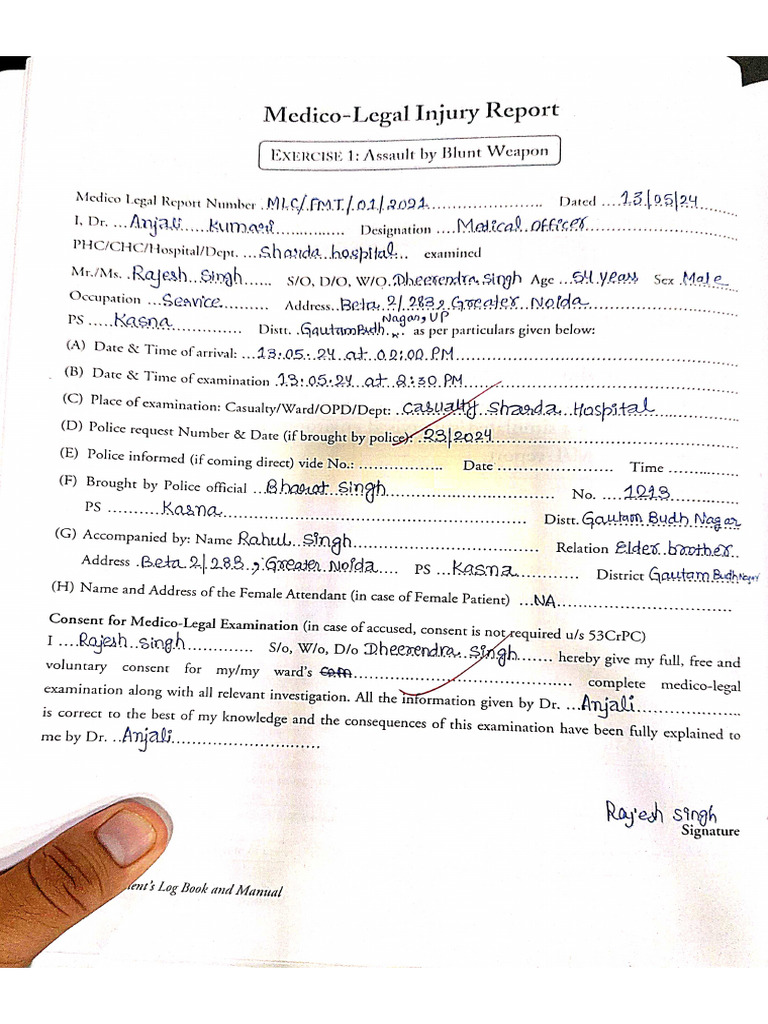 Medico-Legal Injury Report
EXERCISE 1: Assault by Blunt Weapon
Medico Legal Report Number MLC/FMT/01/2021 Dated 13/05/24
I, Dr. Anjali Kumari Designation Medical Officer
PHC/CHC/Hospital/Dept. Sharda hospital examined
Mr./Ms. Rajesh Singh S/O, D/O, W/O Dheerendra Singh Age 54 years Sex Male
Occupation Service Address Beta 2/283, Greater Noida
PS Kasna Distt. Gautam Budh Nagar, UP as per particulars given below:
(A) Date & Time of arrival: 13.05.24 at 02:00 PM
(B) Date & Time of examination 13.05.24 at 2:30 PM
(C) Place of examination: Casualty/Ward/OPD/Dept: Casualty Sharda Hospital
(D) Police request Number & Date (if brought by police): 23/2024
(E) Police informed (if coming direct) vide No.: Date Time
(F) Brought by Police official Bharat Singh No. 1213
PS Kasna Distt. Gautam Budh Nagar
(G) Accompanied by: Name Rahul Singh Relation Elder brother
Address Beta 2/283, Greater Noida PS Kasna District Gautam Budh Nagar
(H) Name and Address of the Female Attendant (in case of Female Patient) NA
Consent for Medico-Legal Examination (in case of accused, consent is not required u/s 53CrPC)
I Rajesh Singh S/o, W/o, D/o Dheerendra Singh hereby give my full, free and
voluntary consent for my/my ward's complete medico-legal
examination along with all relevant investigation. All the information given by Dr. Anjali
is correct to the best of my knowledge and the consequences of this examination have been fully explained to
me by Dr. Anjali
Rajesh Singh
Signature
Log Book and Manual